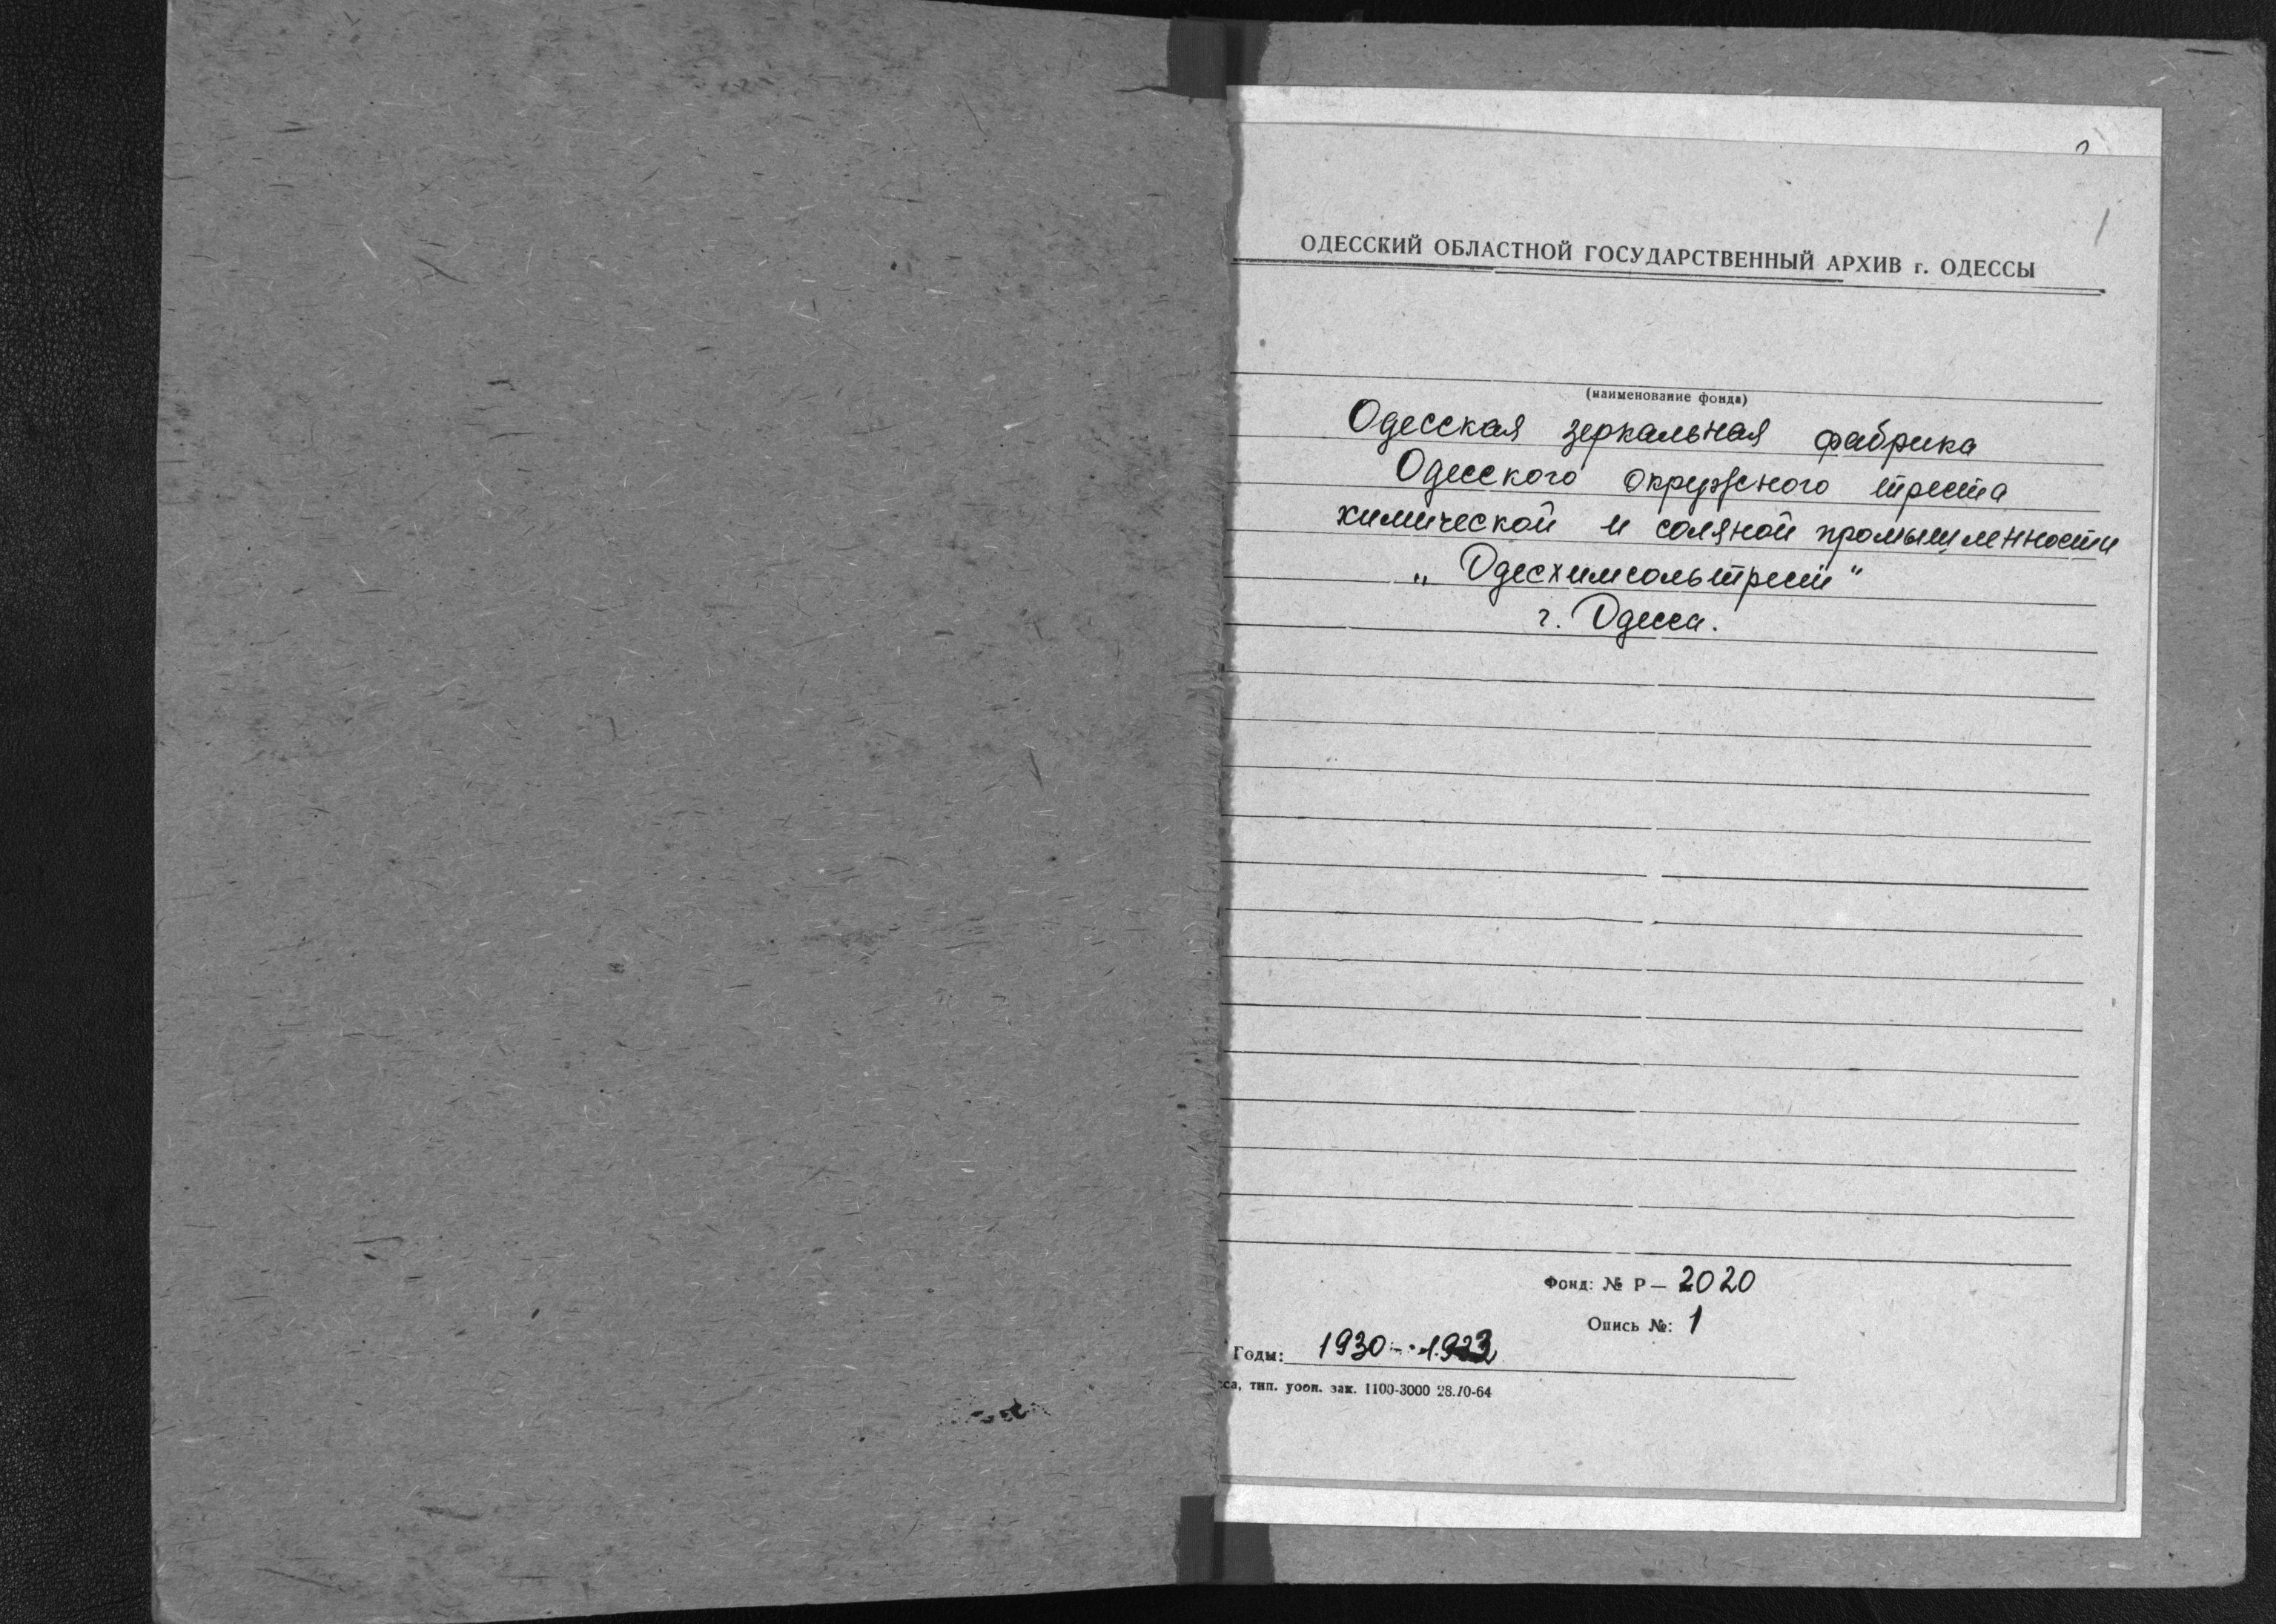 1
ОДЕССКИЙ ОБЛАСТНОЙ ГОСУДАРСТВЕННЫЙ АРХИВ г. ОДЕССЫ
(наименование фонда)
Одесская зеркальная фабрика
Одесского окружного треста
химической и соляной промышленности
„Одесхимсольтрест"
г. Одесса.
Фонд: № Р— 2020
Опись №: 1
Годы: 1930 -
тип. зак. 1100-3000 28.10-64